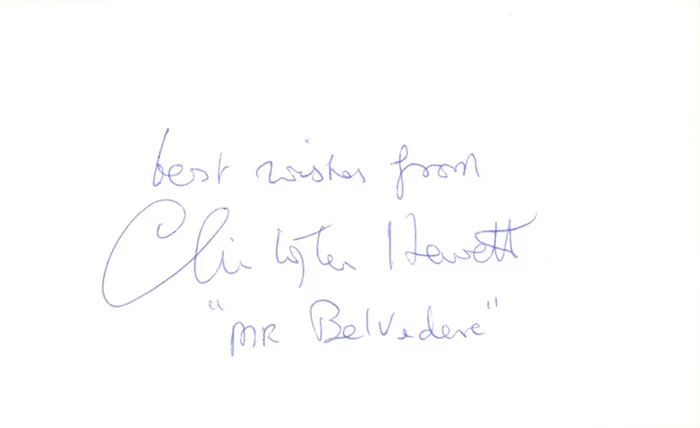 best wishes from
Christopher Hewett
"MR Belvedere"